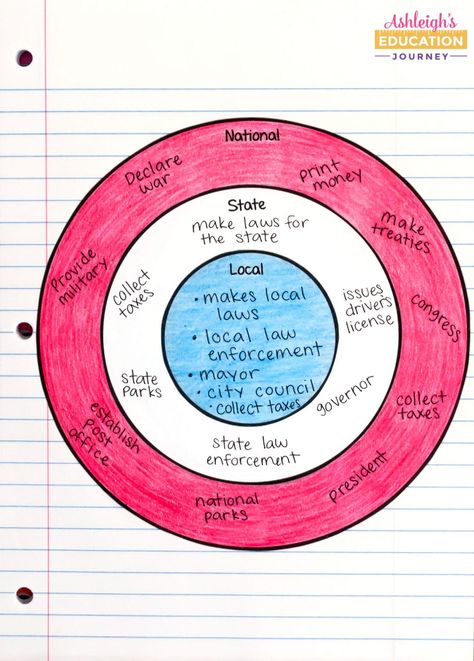 Ashleigh's
EDUCATION
JOURNEY
National
Declare
war
print
money
make
treaties
Congress
collect
taxes
president
national
parks
establish
post
office
Provide
military
State
make laws for
the state
issues
drivers
license
governor
state law
enforcement
state
parks
collect
taxes
Local
• makes local
laws
• local law
enforcement
• mayor
• city council
• collect taxes